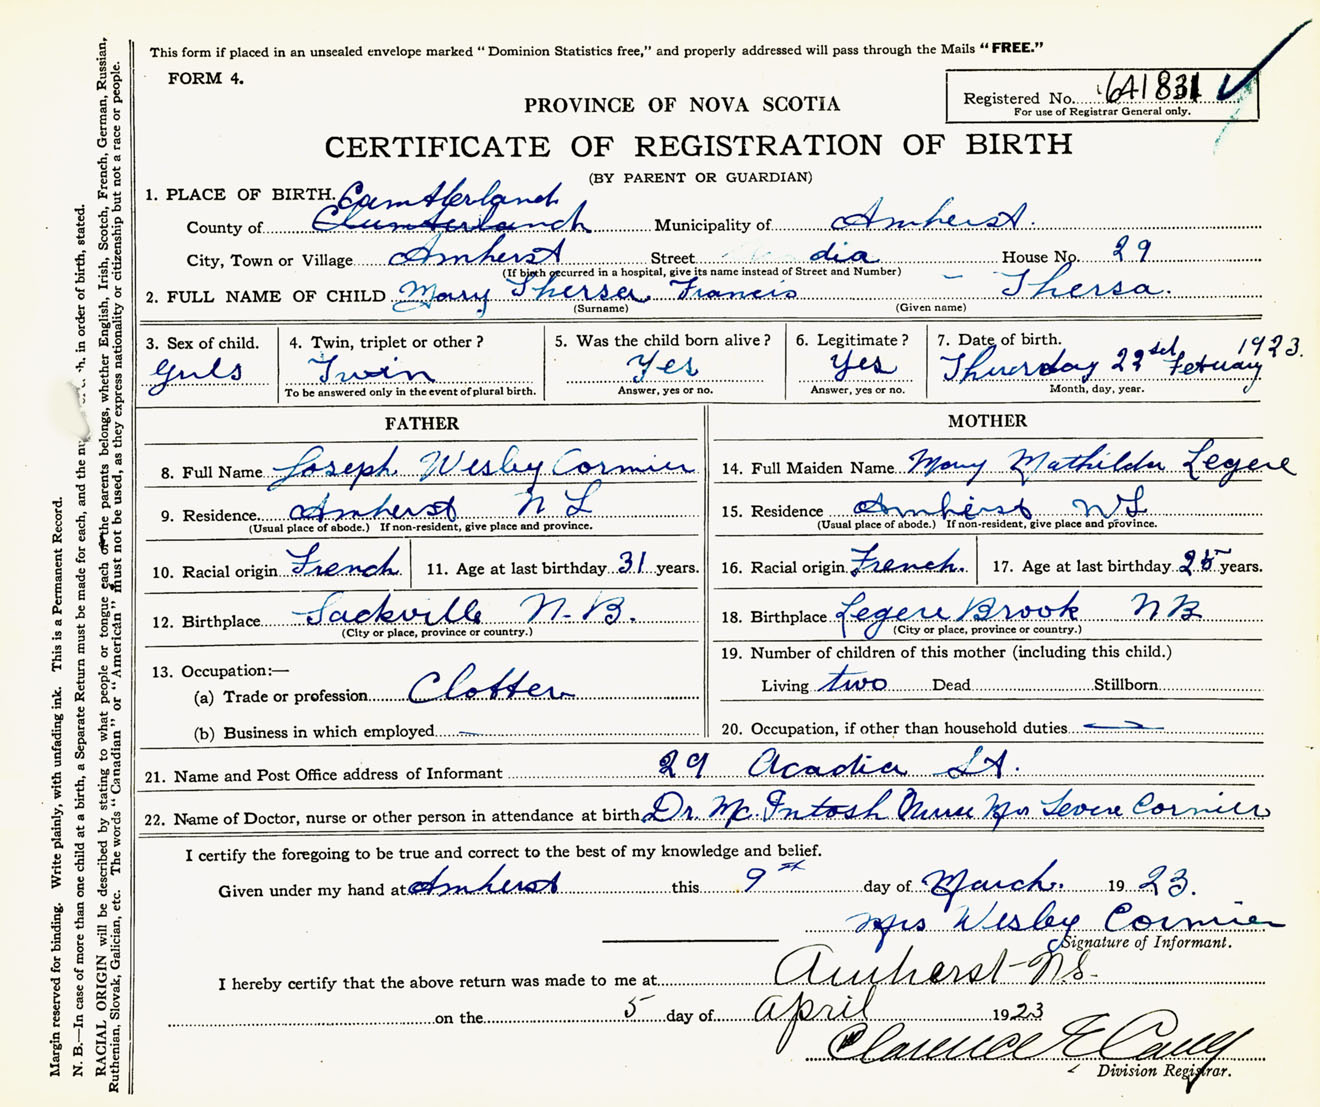 This form if placed in an unsealed envelope marked “Dominion Statistics free,” and properly addressed will pass through the Mails “FREE.”
FORM 4.
Registered No. 641831
For use of Registrar General only.
PROVINCE OF NOVA SCOTIA
CERTIFICATE OF REGISTRATION OF BIRTH
(BY PARENT OR GUARDIAN)
1. PLACE OF BIRTH.
County of Municipality of Amherst.
City, Town or Village Amherst Street dia House No. 29
(If birth occurred in a hospital, give its name instead of Street and Number)
2. FULL NAME OF CHILD Mary Francis - Thersa.
(Surname) (Given name)
3. Sex of child. 4. Twin, triplet or other? 5. Was the child born alive? 6. Legitimate? 7. Date of birth. 1923.
Girls Twin Yes Yes Thursday 22
To be answered only in the event of plural birth. Answer, yes or no. Answer, yes or no. Month, day, year.
FATHER MOTHER
8. Full Name Joseph Wesley Cormier 14. Full Maiden Name Mary Mathilda Legere
9. Residence Amherst 15. Residence Amherst
(Usual place of abode.) If non-resident, give place and province. (Usual place of abode.) If non-resident, give place and province.
10. Racial origin French 11. Age at last birthday 31 years. 16. Racial origin French. 17. Age at last birthday 25 years.
12. Birthplace Sackville N-B. 18. Birthplace Legere Brook NB
(City or place, province or country.) (City or place, province or country.)
13. Occupation:— 19. Number of children of this mother (including this child.)
(a) Trade or profession Living two Dead Stillborn
(b) Business in which employed — 20. Occupation, if other than household duties —
21. Name and Post Office address of Informant 29 Acadia St.
22. Name of Doctor, nurse or other person in attendance at birth Dr. McIntosh Nurse Mrs Cormier
I certify the foregoing to be true and correct to the best of my knowledge and belief.
Given under my hand at Amherst this 9th day of March. 1923.
Mrs Wesley Cormier
Signature of Informant.
I hereby certify that the above return was made to me at Amherst-NS-
on the 5 day of April 1923
Clarence E
Division Registrar.
Margin reserved for binding. Write plainly, with unfading ink. This is a Permanent Record.
N. B.—In case of more than one child at a birth, a Separate Return must be made for each, and the in order of birth, stated.
RACIAL ORIGIN will be described by stating to what people or tongue each of the parents belongs, whether English, Irish, Scotch, French, German, Russian,
Ruthenian, Slovak, Galician, etc. The words “Canadian” or “American” must not be used, as they express nationality or citizenship but not a race or people.